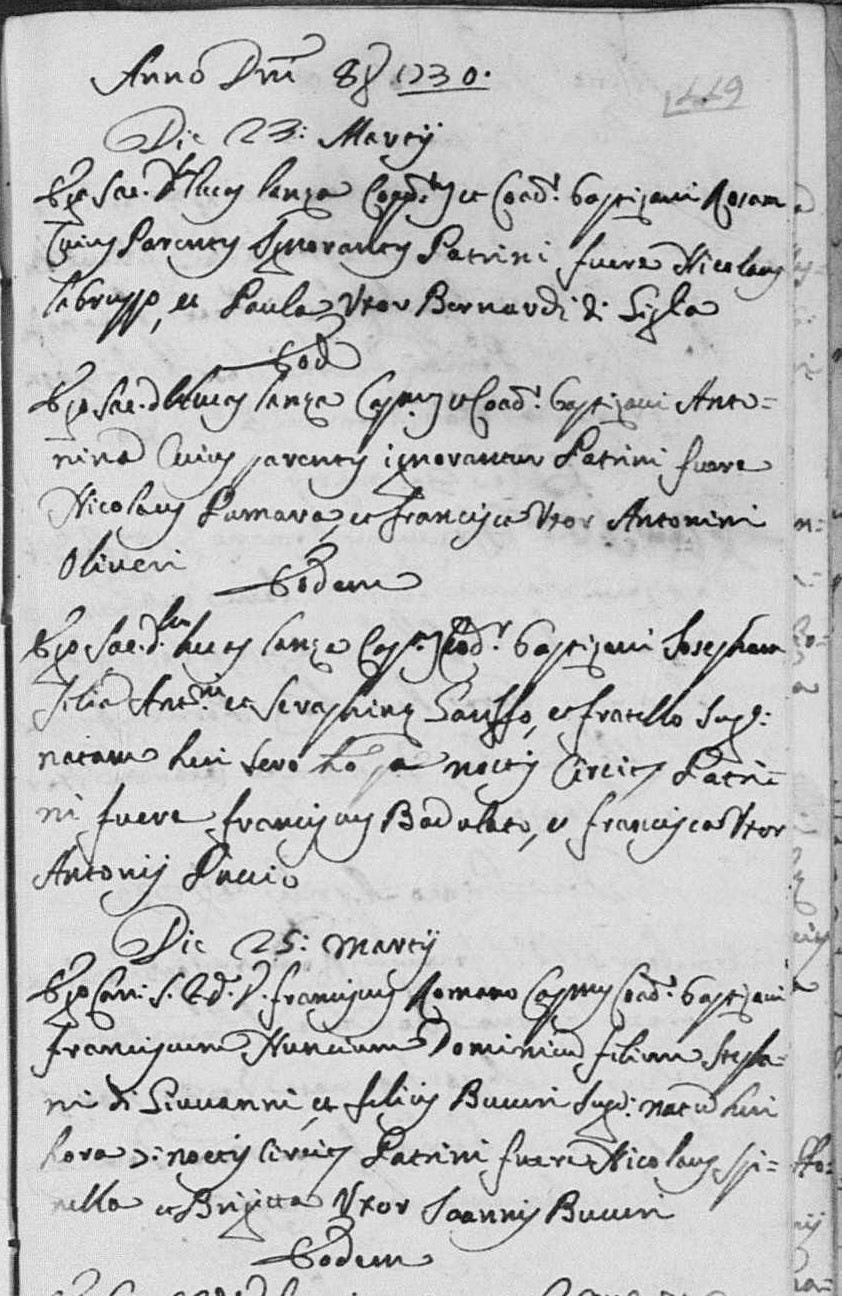 Anno Dni 8ę 1730.
119
Die 23: Martij
Ego Sac. D. Lucas Lanza Capp.s et Coad.r baptizavi Rosam
Cuius Parentes Ignorantur Patrini fuere Nicolaus
labruzzo, et Paula Uxor Bernardi di Sigla
Eod
Ego Sac. D. Lucas Lanza Cap.s et Coad.r baptizavi Anto=
ninã Cuius parentes ignorantur Patrini fuere
Nicolaus Pumara, et Francisca Uxor Antonini
Oliveri
Eodem
Ego Sac. D. Lucas Lanza Cap.s Coad.r baptizavi Josepham
Filiã Ant.ni et Seraphinę et fratello Sup.:
natam heri sero ho pa noctis Circit.s Patri=
ni fuere Franciscus Badalato, et Francisca Uxor
Antonij Puccio
Die 25: Martij
Ego Can: S. T. D. D. Franciscus Romano Cap.nus Coad.r baptizavi
Franciscum Nuncium Dominicũ filium Stepha=
ni di Giuvanni, et Felicis Bucceri Sup.: natũ heri
hora noctis Circit.s Patrini fuere Nicolaus Spi=
nella et Brigitta Uxor Joannis Bucceri
Eodem